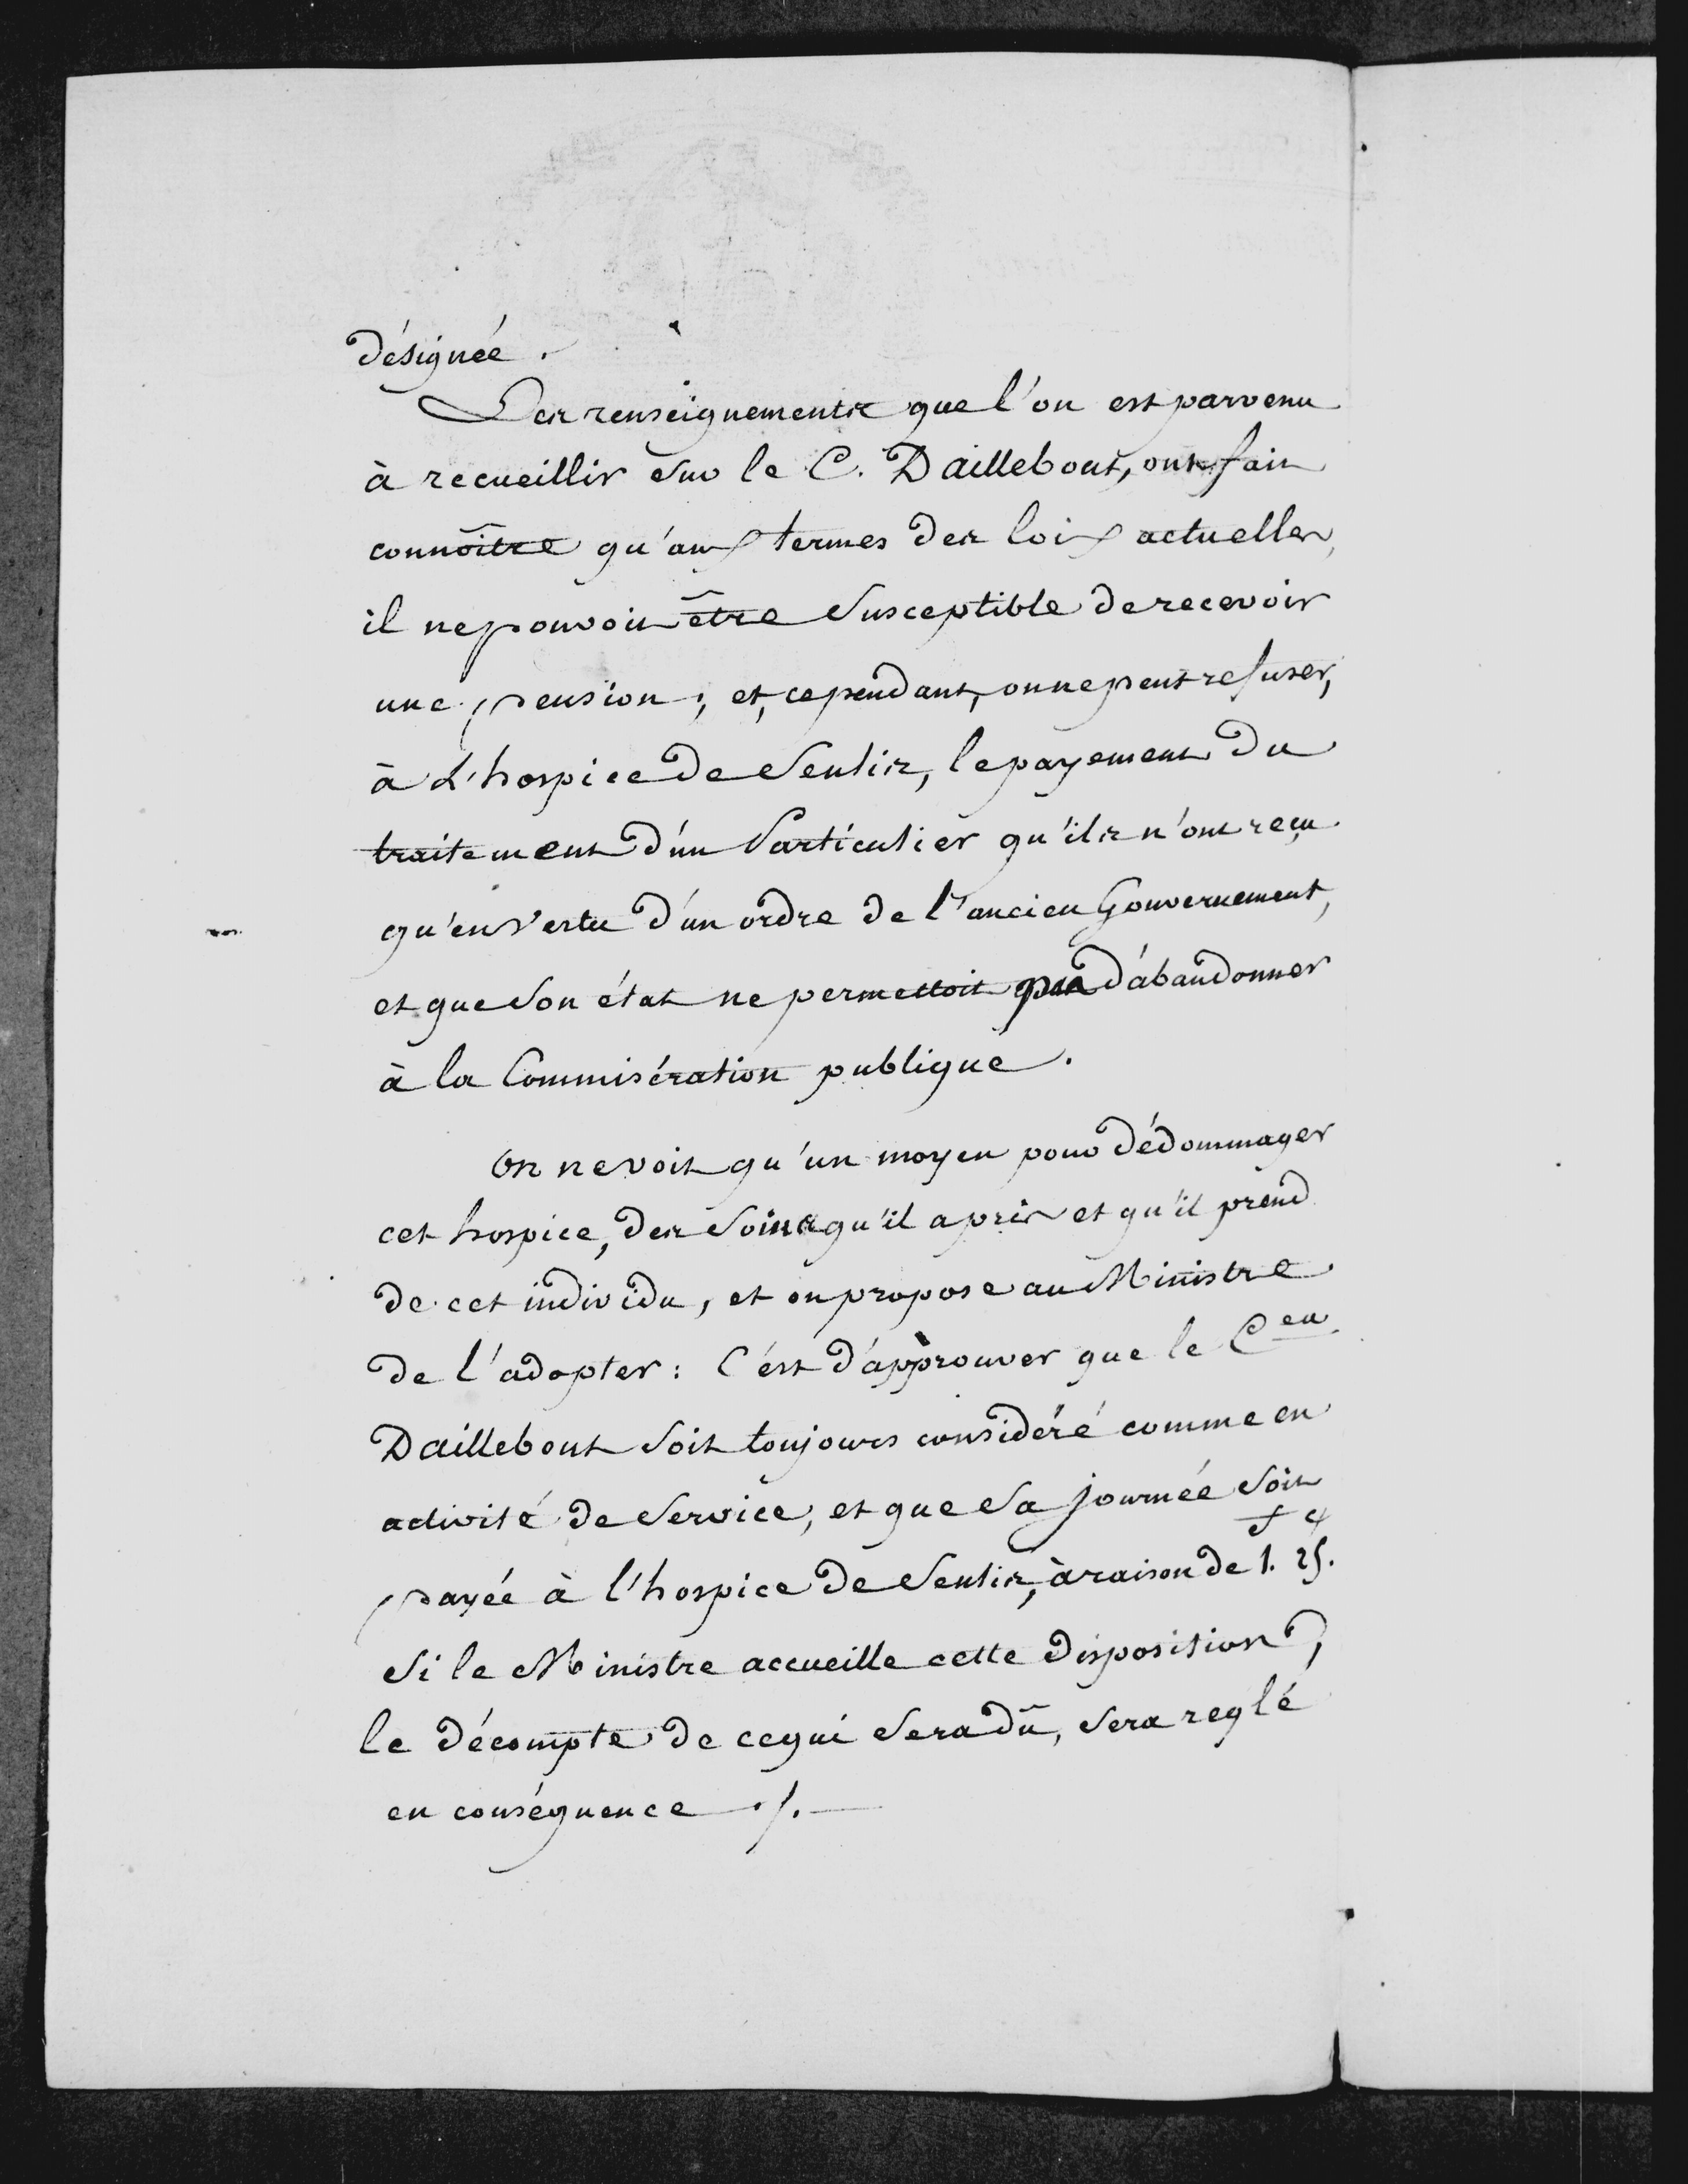 désignée.
Les renseignements que l'on est parvenu
à recueillir sur le C. Daillebout, ont fait
connoître qu'aux termes des loix actuelles,
il ne pouvoit être susceptible de recevoir
une pension; et, cependant, on ne peut refuser,
à L'hospice de Senlis, le payement du
traitement d'un Particulier qu'ils n'ont reçu
qu'en vertu d'un ordre de l'ancien Gouvernement,
et que son état ne permettoit pas d'abandonner
à la Commisération publique.
On ne voit qu'un moyen pour dédommager
cet hospice, des soins qu'il a pris et qu'il prend
de cet individu, et on propose au Ministre
de l'adopter: C'est d'approuver que le Cen
Daillebout soit toujours considéré comme en
activité de service, et que sa journée soit
payée à l'hospice de Senlis, à raison de 1.f 25.c
Si le Ministre accueille cette disposition,
le décompte de ce qui sera dû, sera reglé
en conséquence ./.